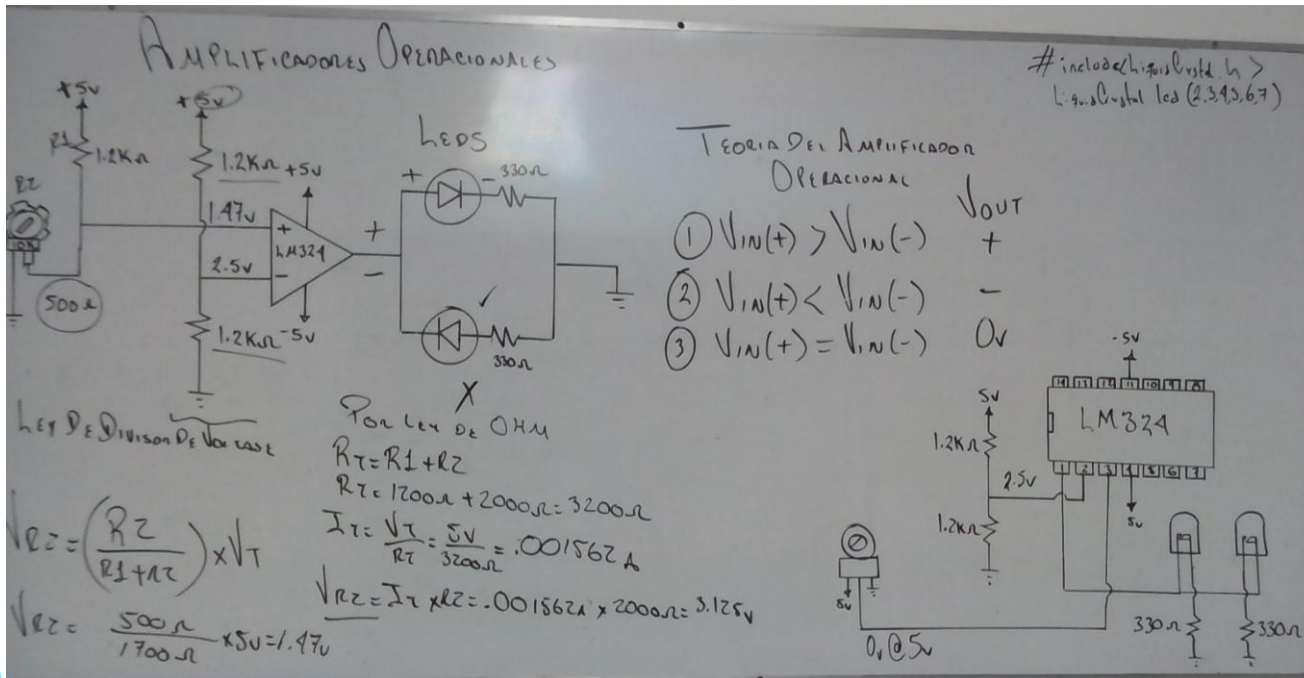 AMPLIFICADORES OPERACIONALES
#include<LiquidCrystal.h>
LiquidCrystal lcd (2,3,4,5,6,7)
+5v
+5v
R1
1.2KΩ
1.2KΩ
+5v
R2
1.47v
+
LM324
2.5v
-
500Ω
1.2KΩ
-5v
+
-
LEDS
+
-
330Ω
330Ω
X
TEORIA DEL AMPLIFICADOR
OPERACIONAL
VOUT
1 VIN(+) > VIN(-) +
2 VIN(+) < VIN(-) -
3 VIN(+) = VIN(-) 0v
LEY DE DIVISON DE VOLTAGE
VR2 = (R2 / R1+R2) x VT
VR2 = 500Ω / 1700Ω x 5v = 1.47v
POR LEY DE OHM
RT = R1 + R2
RT = 1200Ω + 2000Ω = 3200Ω
IT = VT / RT = 5V / 3200Ω = .001562A
VR2 = IT x R2 = .001562A x 2000Ω = 3.125v
-5v
14 13 12 11 10 9 8
LM324
1 2 3 4 5 6 7
5v
1.2KΩ
2.5v
1.2KΩ
5v
5v
0v @ 5v
330Ω
330Ω